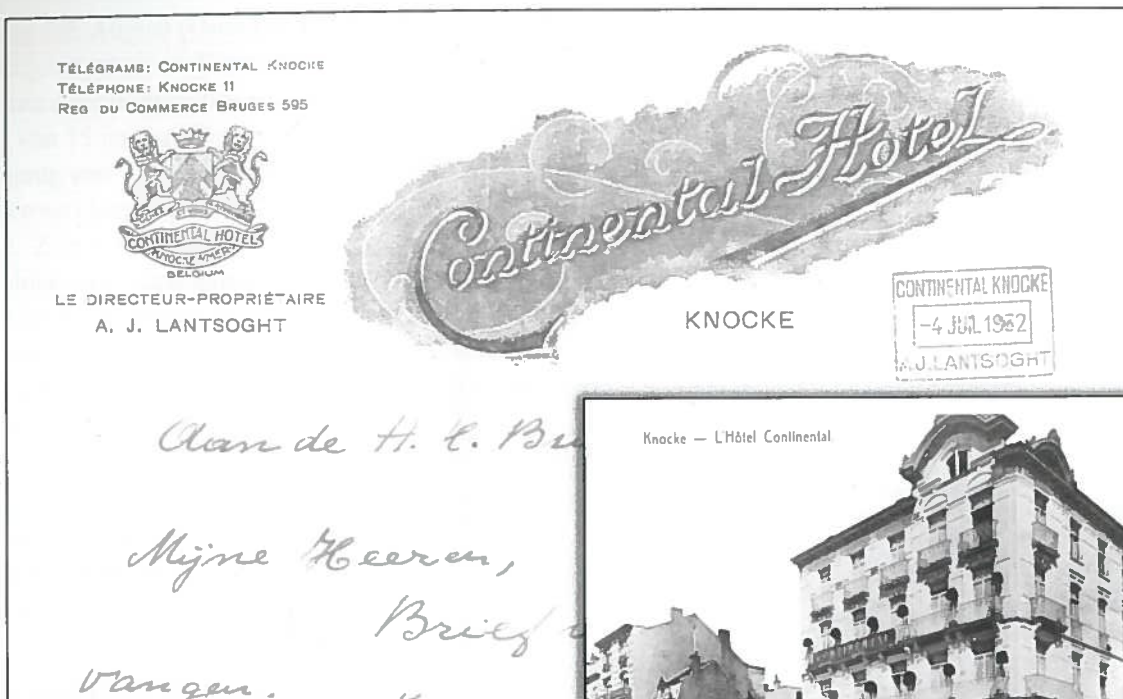 TÉLÉGRAMS: CONTINENTAL KNOCKE
TÉLÉPHONE: KNOCKE 11
REG DU COMMERCE BRUGES 595
CONTINENTAL HOTEL
KNOCKE S/MER
BELGIUM
LE DIRECTEUR-PROPRIÉTAIRE
A. J. LANTSOGHT
Continental Hotel
KNOCKE
CONTINENTAL KNOCKE
-4 JUIL 1932
A.J. LANTSOGHT
Aan de H. E.
Knocke — L'Hôtel Continental
Mijne Heeren,
Brief
vangen.
CONTINENTAL